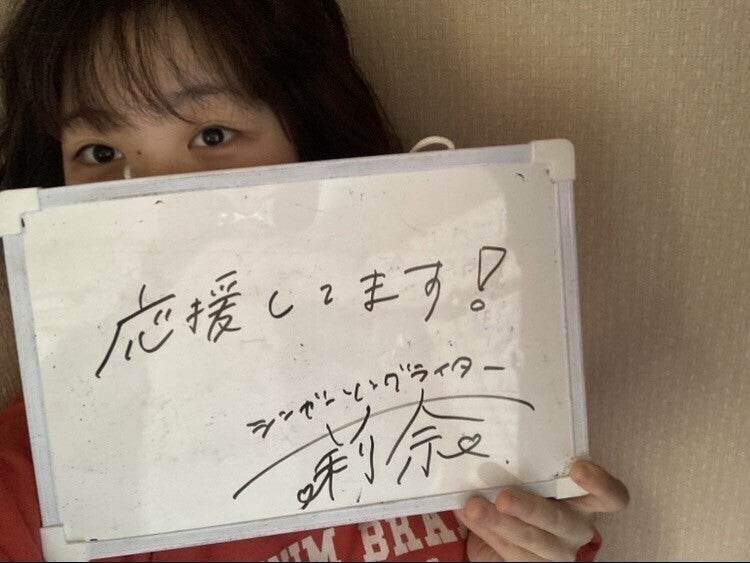 応援してます!
シンガーソングライター
莉奈